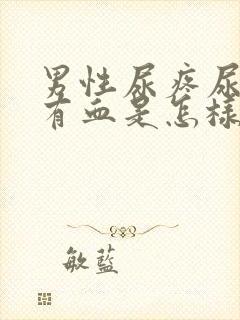 男性尿疼尿
有血是怎样
敏蓝